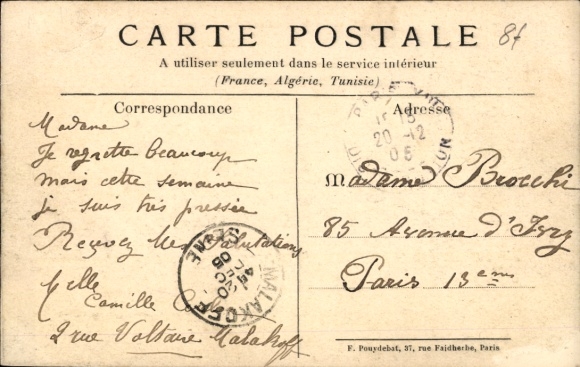 CARTE POSTALE
8f
A utiliser seulement dans le service intérieur
(France, Algérie, Tunisie)
Correspondance
Madame
Je regrette beaucoup
mais cette semaine
je suis très pressée
Recevez Mes Salutations
Melle
Camille
2 rue Voltaire Malakoff
MALAKOFF
SEINE
05
Adresse
PARIS
20 -12
05
Madame Brocchi
85 Avenue d'Ivry
Paris 13eme
F. Pouydebat, 37, rue Faidherbe, Paris